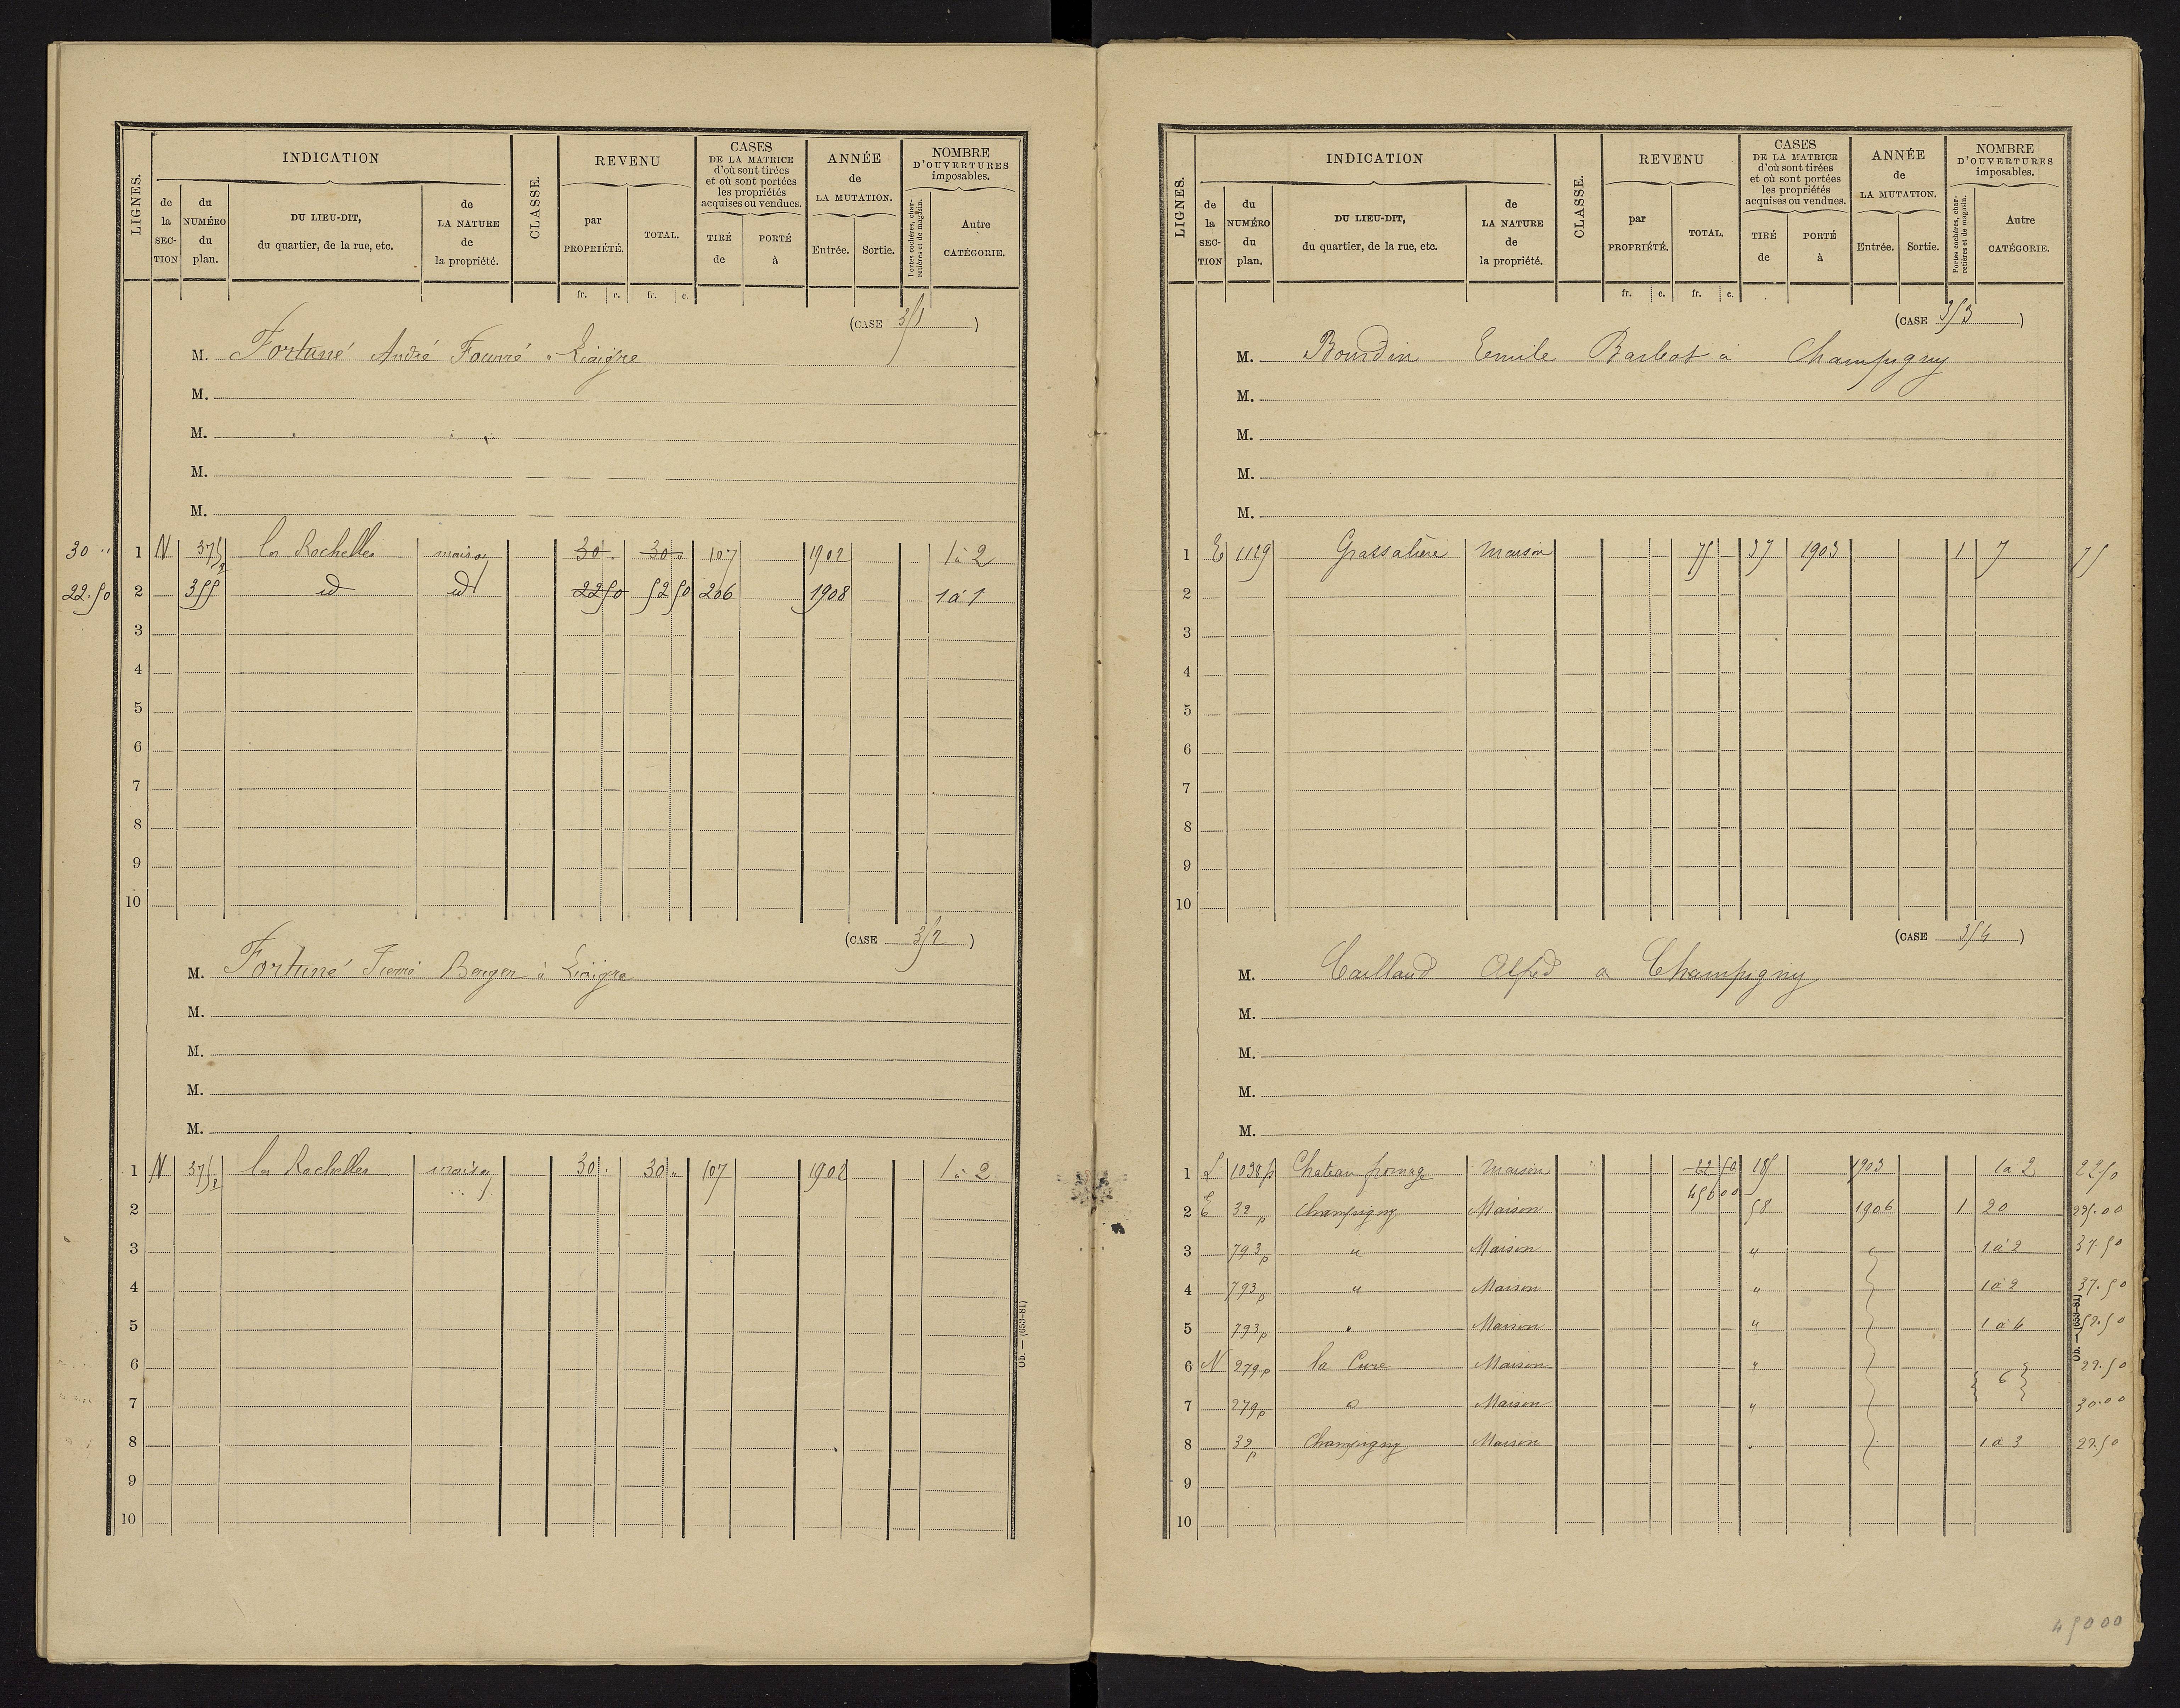 LIGNES. INDICATION CLASSE. REVENU CASES DE LA MATRICE d'où sont tirées et où sont portées les propriétés acquises ou vendues. ANNÉE de LA MUTATION. NOMBRE D'OUVERTURES imposables.
de la SECTION du NUMÉRO du plan. DU LIEU-DIT, du quartier, de la rue, etc. de LA NATURE de la propriété. par PROPRIÉTÉ. TOTAL. TIRÉ de PORTÉ à Entrée. Sortie. Portes cochères, charretières et de magasin. Autre CATÉGORIE.
fr. c. fr. c.
(CASE 351)
M. Fortuné André Fourré à Liaigre
M.
M.
M.
M.
30 " 1 N 375 2 les Rochelles maison 30 " 30 " 107 1902 1 à 2
22.50 2 355 id id 22 50 52 50 206 1908 1 à 1
3
4
5
6
7
8
9
10
(CASE 352)
M. Fortuné Berger à Liaigre
M.
M.
M.
M.
1 N 375 2 les Rochelles maison 30 " 30 " 107 1902 1 à 2
2
3
4
5
6
7
8
9
10
Ob. — (653-81)
LIGNES. INDICATION CLASSE. REVENU CASES DE LA MATRICE d'où sont tirées et où sont portées les propriétés acquises ou vendues. ANNÉE de LA MUTATION. NOMBRE D'OUVERTURES imposables.
de la SECTION du NUMÉRO du plan. DU LIEU-DIT, du quartier, de la rue, etc. de LA NATURE de la propriété. par PROPRIÉTÉ. TOTAL. TIRÉ de PORTÉ à Entrée. Sortie. Portes cochères, charretières et de magasin. Autre CATÉGORIE.
fr. c. fr. c.
(CASE 353)
M. Bourdin Emile Barbot à Champigny
M.
M.
M.
M.
1 E 1129 Grassatière Maison 75 37 1903 1 7 75
2
3
4
5
6
7
8
9
10
(CASE 354)
M. Caillaud Alfred à Champigny
M.
M.
M.
M.
1 1038 p Chateau fromage Maison 22 50 185 1903 1 à 2 22 50
450 00
2 E 32 p Champigny Maison 58 1906 1 20 225.00
3 793 p " Maison " 1 à 2 37.50
4 793 p " Maison " 1 à 2 37.50
5 793 p " Maison " 1 à 6 52.50
6 N 279 p la Cure Maison " 6 22.50
7 279 p Maison " 30.00
8 32 p Champigny Maison " 1 à 3 22.50
9
10
Ob. — (653-81)
45000